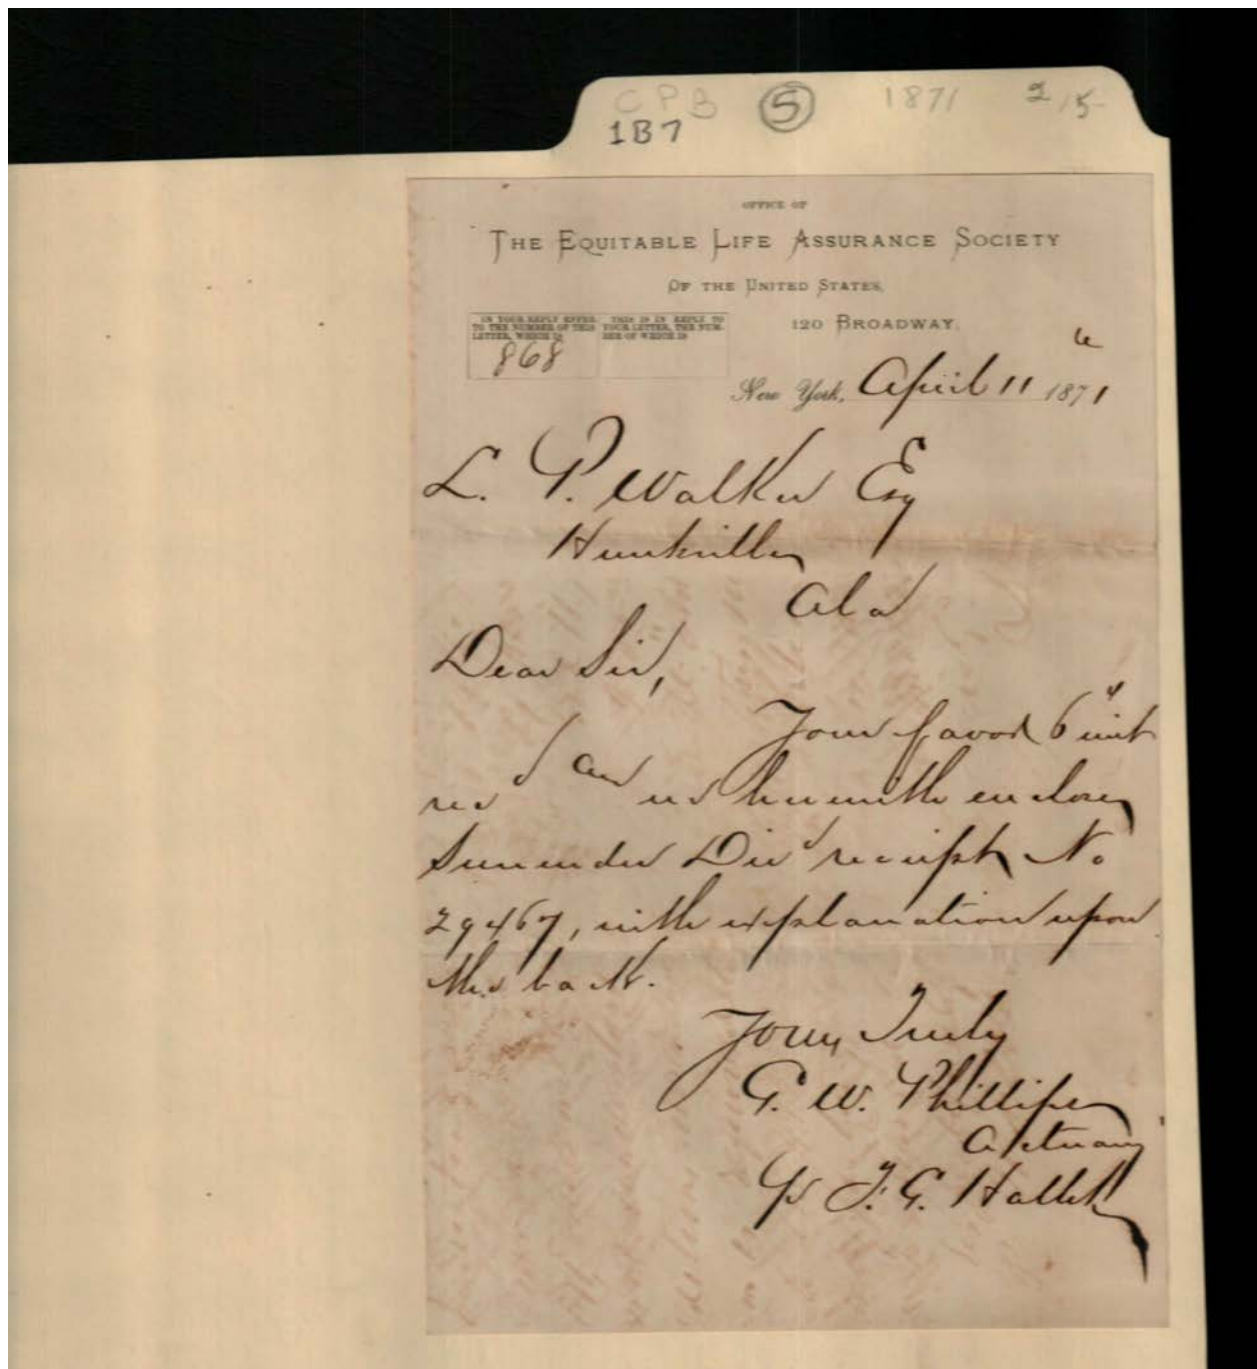 CPB 5 1871 2/5
1B7
OFFICE OF
THE EQUITABLE LIFE ASSURANCE SOCIETY
OF THE UNITED STATES,
120 BROADWAY.
IN YOUR REPLY REFER TO THE NUMBER OF THIS LETTER, WHICH IS
868
THIS IS IN REPLY TO YOUR LETTER, THE NUMBER OF WHICH IS
New York, April 11 1871
L. P. Walker Esq
Huntsville
Ala
Dear Sir,
Your favor 6" inst
recd and we herewith enclose
Surrender Divd receipt No
29467, with explanation upon
the back.
Yours Truly
G. W. Phillips
Actuary
J. G. Hallett